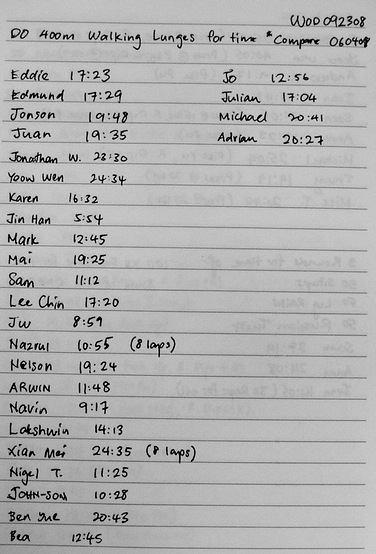 WOD 092308
DO 400m Walking Lunges for time *Compare 060408
Eddie 17:23
Edmund 17:29
Jonson 19:48
Juan 19:35
Jonathan W. 23:30
Yoow Wen 24:34
Karen 16:32
Jin Han 5:54
Mark 12:45
Mai 19:25
Sam 11:12
Lee Chin 17:20
JW 8:59
Nazrul 10:55 (8 laps)
Nelson 19:24
ARWIN 11:48
Navin 9:17
Lakshwin 14:13
Xian Mei 24:35 (8 laps)
Nigel T. 11:25
JOHN-SON 10:28
Ben Yue 20:43
Bea 12:45
Jo 12:56
Julian 17:04
Michael 20:41
Adrian 20:27